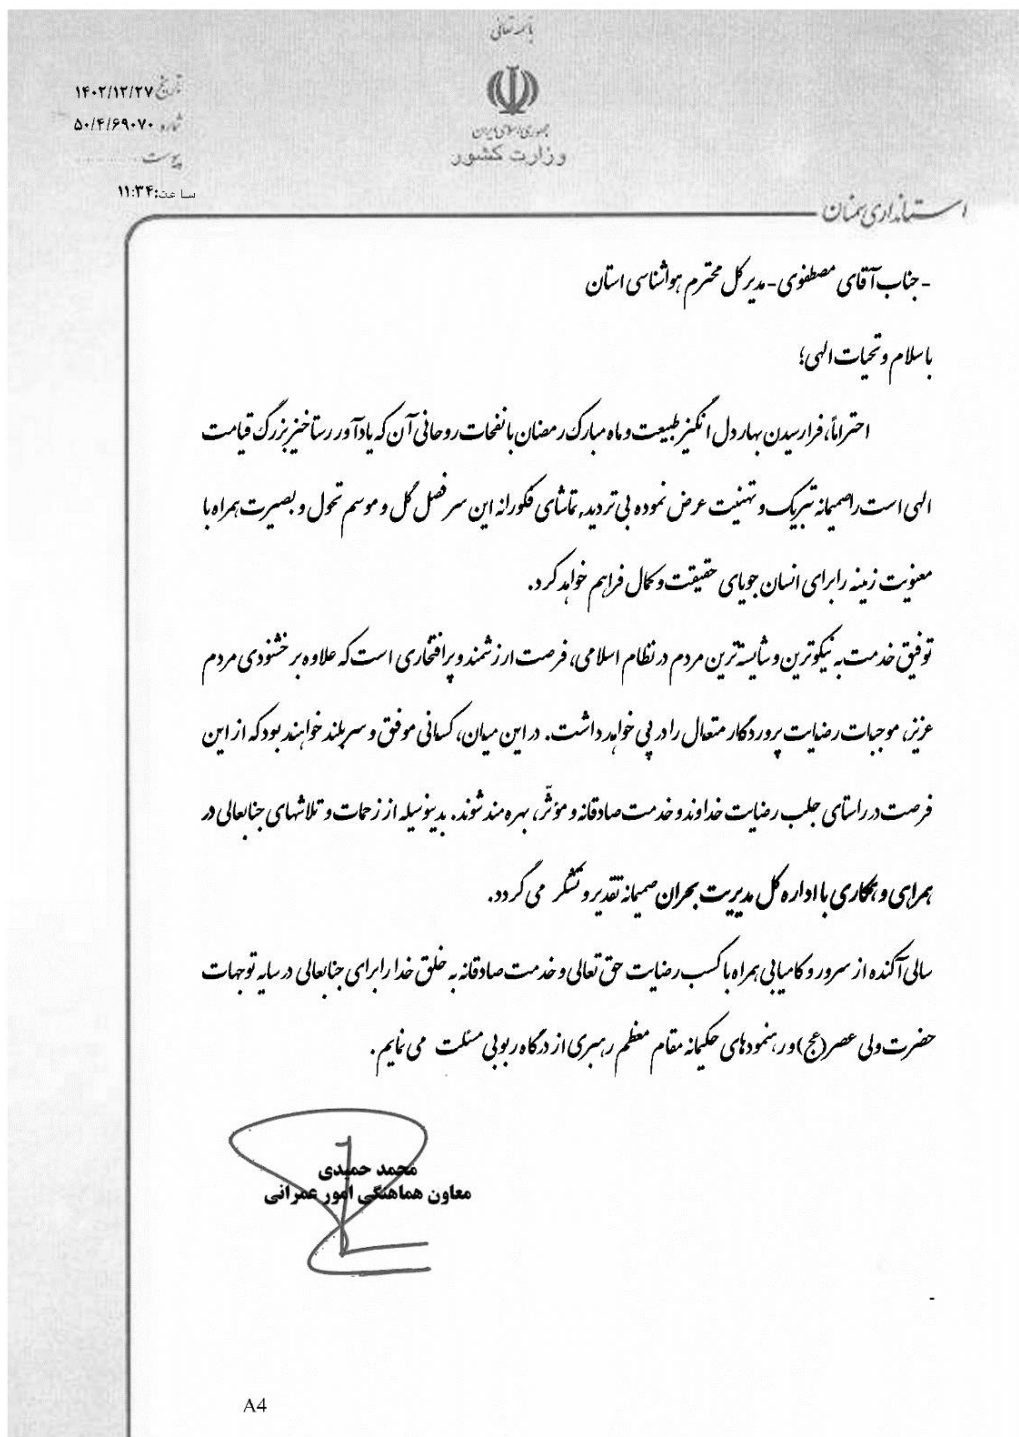 باسمه تعالی
جمهوری اسلامی ایران
وزارت کشور
تاریخ ۱۴۰۲/۱۲/۲۷
شماره ۵۰/۴/۶۹۰۷۰
پیوست ............
ساعت:۱۱:۳۴
استانداری سمنان
- جناب آقای مصطفوی - مدیر کل محترم هواشناسی استان
با سلام و تحیات الهی؛
احتراماً، فرارسیدن بهار دل انگیز طبیعت و ماه مبارک رمضان با نفحات روحانی آن که یادآور رستاخیز بزرگ قیامت
الهی است را صمیمانه تبریک و تهنیت عرض نموده بی تردید, تماشای فکورانه این سر فصل گل و موسم تحول و بصیرت همراه با
معنویت زمینه را برای انسان جویای حقیقت و کمال فراهم خواهد کرد.
توفیق خدمت به نیکوترین و شایسته ترین مردم در نظام اسلامی، فرصت ارزشمند و پرافتخاری است که علاوه بر خشنودی مردم
عزیز، موجبات رضایت پروردگار متعال را در پی خواهد داشت. در این میان، کسانی موفق و سربلند خواهند بود که از این
فرصت در راستای جلب رضایت خداوند و خدمت صادقانه و مؤثّر، بهره مند شوند. بدینوسیله از زحمات و تلاشهای جنابعالی در
همراهی و همکاری با اداره کل مدیریت بحران صمیمانه تقدیر و تشکر می گردد.
سالی آکنده از سرور و کامیابی همراه با کسب رضایت حق تعالی و خدمت صادقانه به خلق خدا را برای جنابعالی در سایه توجهات
حضرت ولی عصر(عج) و رهنمودهای حکیمانه مقام معظم رهبری از درگاه ربوبی مسئلت می نمایم.
محمد حمیدی
معاون هماهنگی امور عمرانی
-
A4